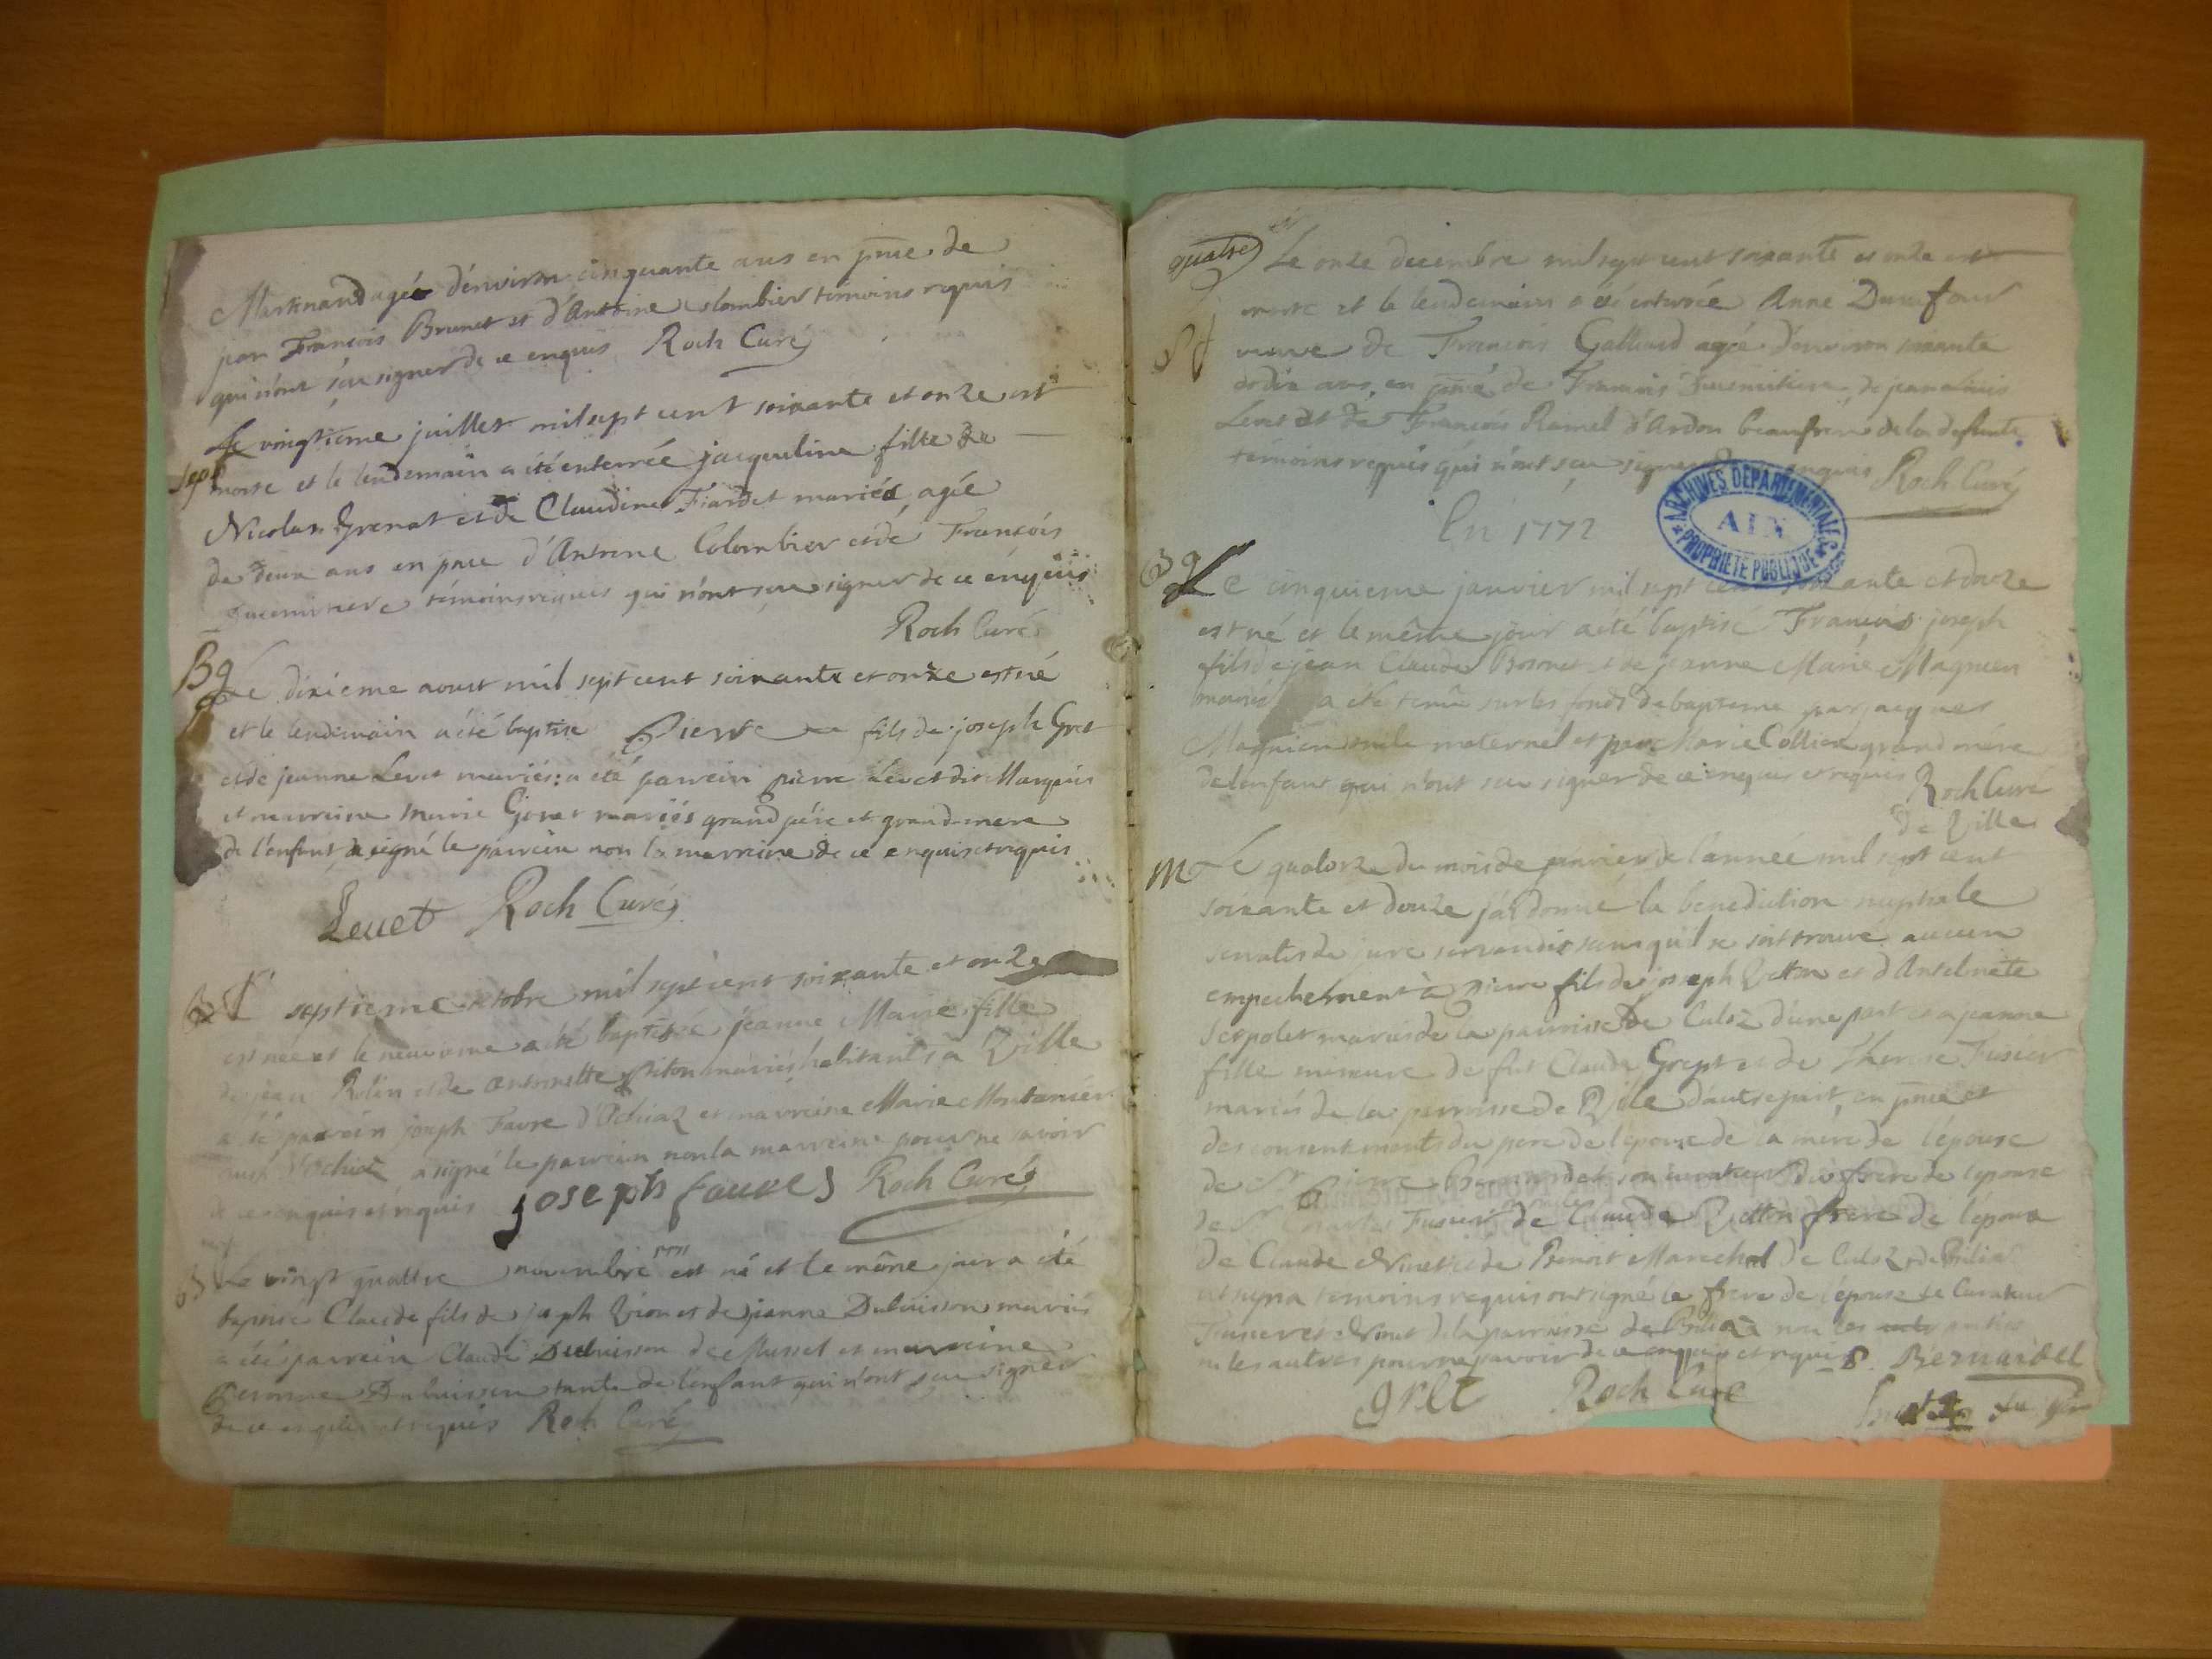 Martinand agée d'environ cinquante ans en pnce de
par François Brunet et d'Antoine Colombier temoins requis
qui n'ont sçu signer de ce enquis Roch Curé
Sep
Le vingtieme juillet mil sept cent soixante et onze est
morte et le lendemain a été enterrée jacqueline fille de
Nicolas Grenat et de Claudine Fiardet mariés, agée
de deux ans en pnce d'Antoine Colombier et de François
temoins requis qui n'ont sçu signer de ce enquis
Roch Curé
Bg
Le dixieme aoust mil sept cent soixante et onze est né
et le lendemain a été baptisé Pierre fils de joseph Gret
et de jeanne Levet mariés: a été parrein pierre Levet dit Marquis
et marreine marie mariés grand père et grand mere
de l'enfant, a signé le parrein non la marreine de ce enquis et requis
Levet Roch Curé
B
Le septieme octobre mil sept cent soixante et onze
est née et le neuvieme a été baptisée jeanne Marie fille
de jean Rolin et de antoinette mariés habitants à Ville
a été parrein joseph Favre d'Ochiaz et marreine Marie Montanier
aussi d'Ochiaz a signé le parrein non la marreine pour ne savoir
de ce enquis et requis joseph favre Roch Curé
B
Le vingt quattre novembre 1771 est né et le même jour a été
baptisé Claude fils de joseph et de jeanne Dubuisson mariés
a été parrein Claude Dubuisson de Mussel et marreine
Dubuisson tante de l'enfant qui n'ont sçu signer
de ce enquis et requis Roch Curé
quatre
Le onze decembre mil sept cent soixante et onze est
morte et le lendemain a été enterrée Anne Dufour
veuve de François Galland agée d'environ soixante
et dix ans en pnce de François de jean
Levet et de François Ramel d'Ardon beaufrere de la defunte
temoins requis qui n'ont sçu signer de ce enquis Roch Curé
En 1772
ARCHIVES DEPARTEMENTALES
AIN
PROPRIETE PUBLIQUE
Bg
Le cinquieme janvier mil sept cent soixante et douze
est né et le même jour a été baptisé François joseph
fils de jean Claude et de jeanne Marie Magnien
mariés a été tenu sur les fonds de bapteme par jacques
Magnien oncle maternel et par Marie Collier grand mere
de l'enfant qui n'ont sçu signer de ce enquis et requis Roch Curé
de Ville
M
Le quatorze du mois de janvier de l'année mil sept cent
soixante et douze j'ai donné la benediction nuptiale
servatis de jure servandis sans qu'il se soit trouvé aucun
empechement à pierre fils de joseph et d'Antoinette
mariés de la parroisse de Culoz d'une part et a jeanne
fille mineure de fut Claude et de Therese Fusier
mariés de la parroisse de Ville d'autre part, en pnce et
des consentements du pere de l'epoux de la mere de l'épouse
de Sr Pierre Bernardet son curateur frere de l'epouse
de Sr Charles Fusier de Claude frere de l'époux
de Claude et de Benoit Marechal de Culoz
ut supra temoins requis ont signé le frere de l'épouse le Curateur
Fusier et de la parroisse de non les
ni les autres pour ne savoir de ce enquis et requis P. Bernardet
gret Roch Curé